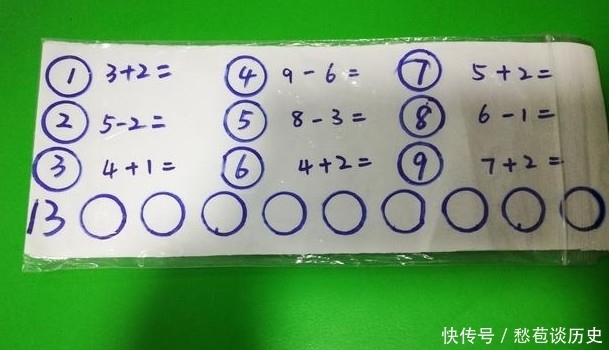 ① 3+2= ④ 9-6= ⑦ 5+2=
② 5-2= ⑤ 8-3= ⑧ 6-1=
③ 4+1= ⑥ 4+2= ⑨ 7+2=
13 ○ ○ ○ ○ ○ ○ ○ ○ ○
快传号 / 愁苞谈历史